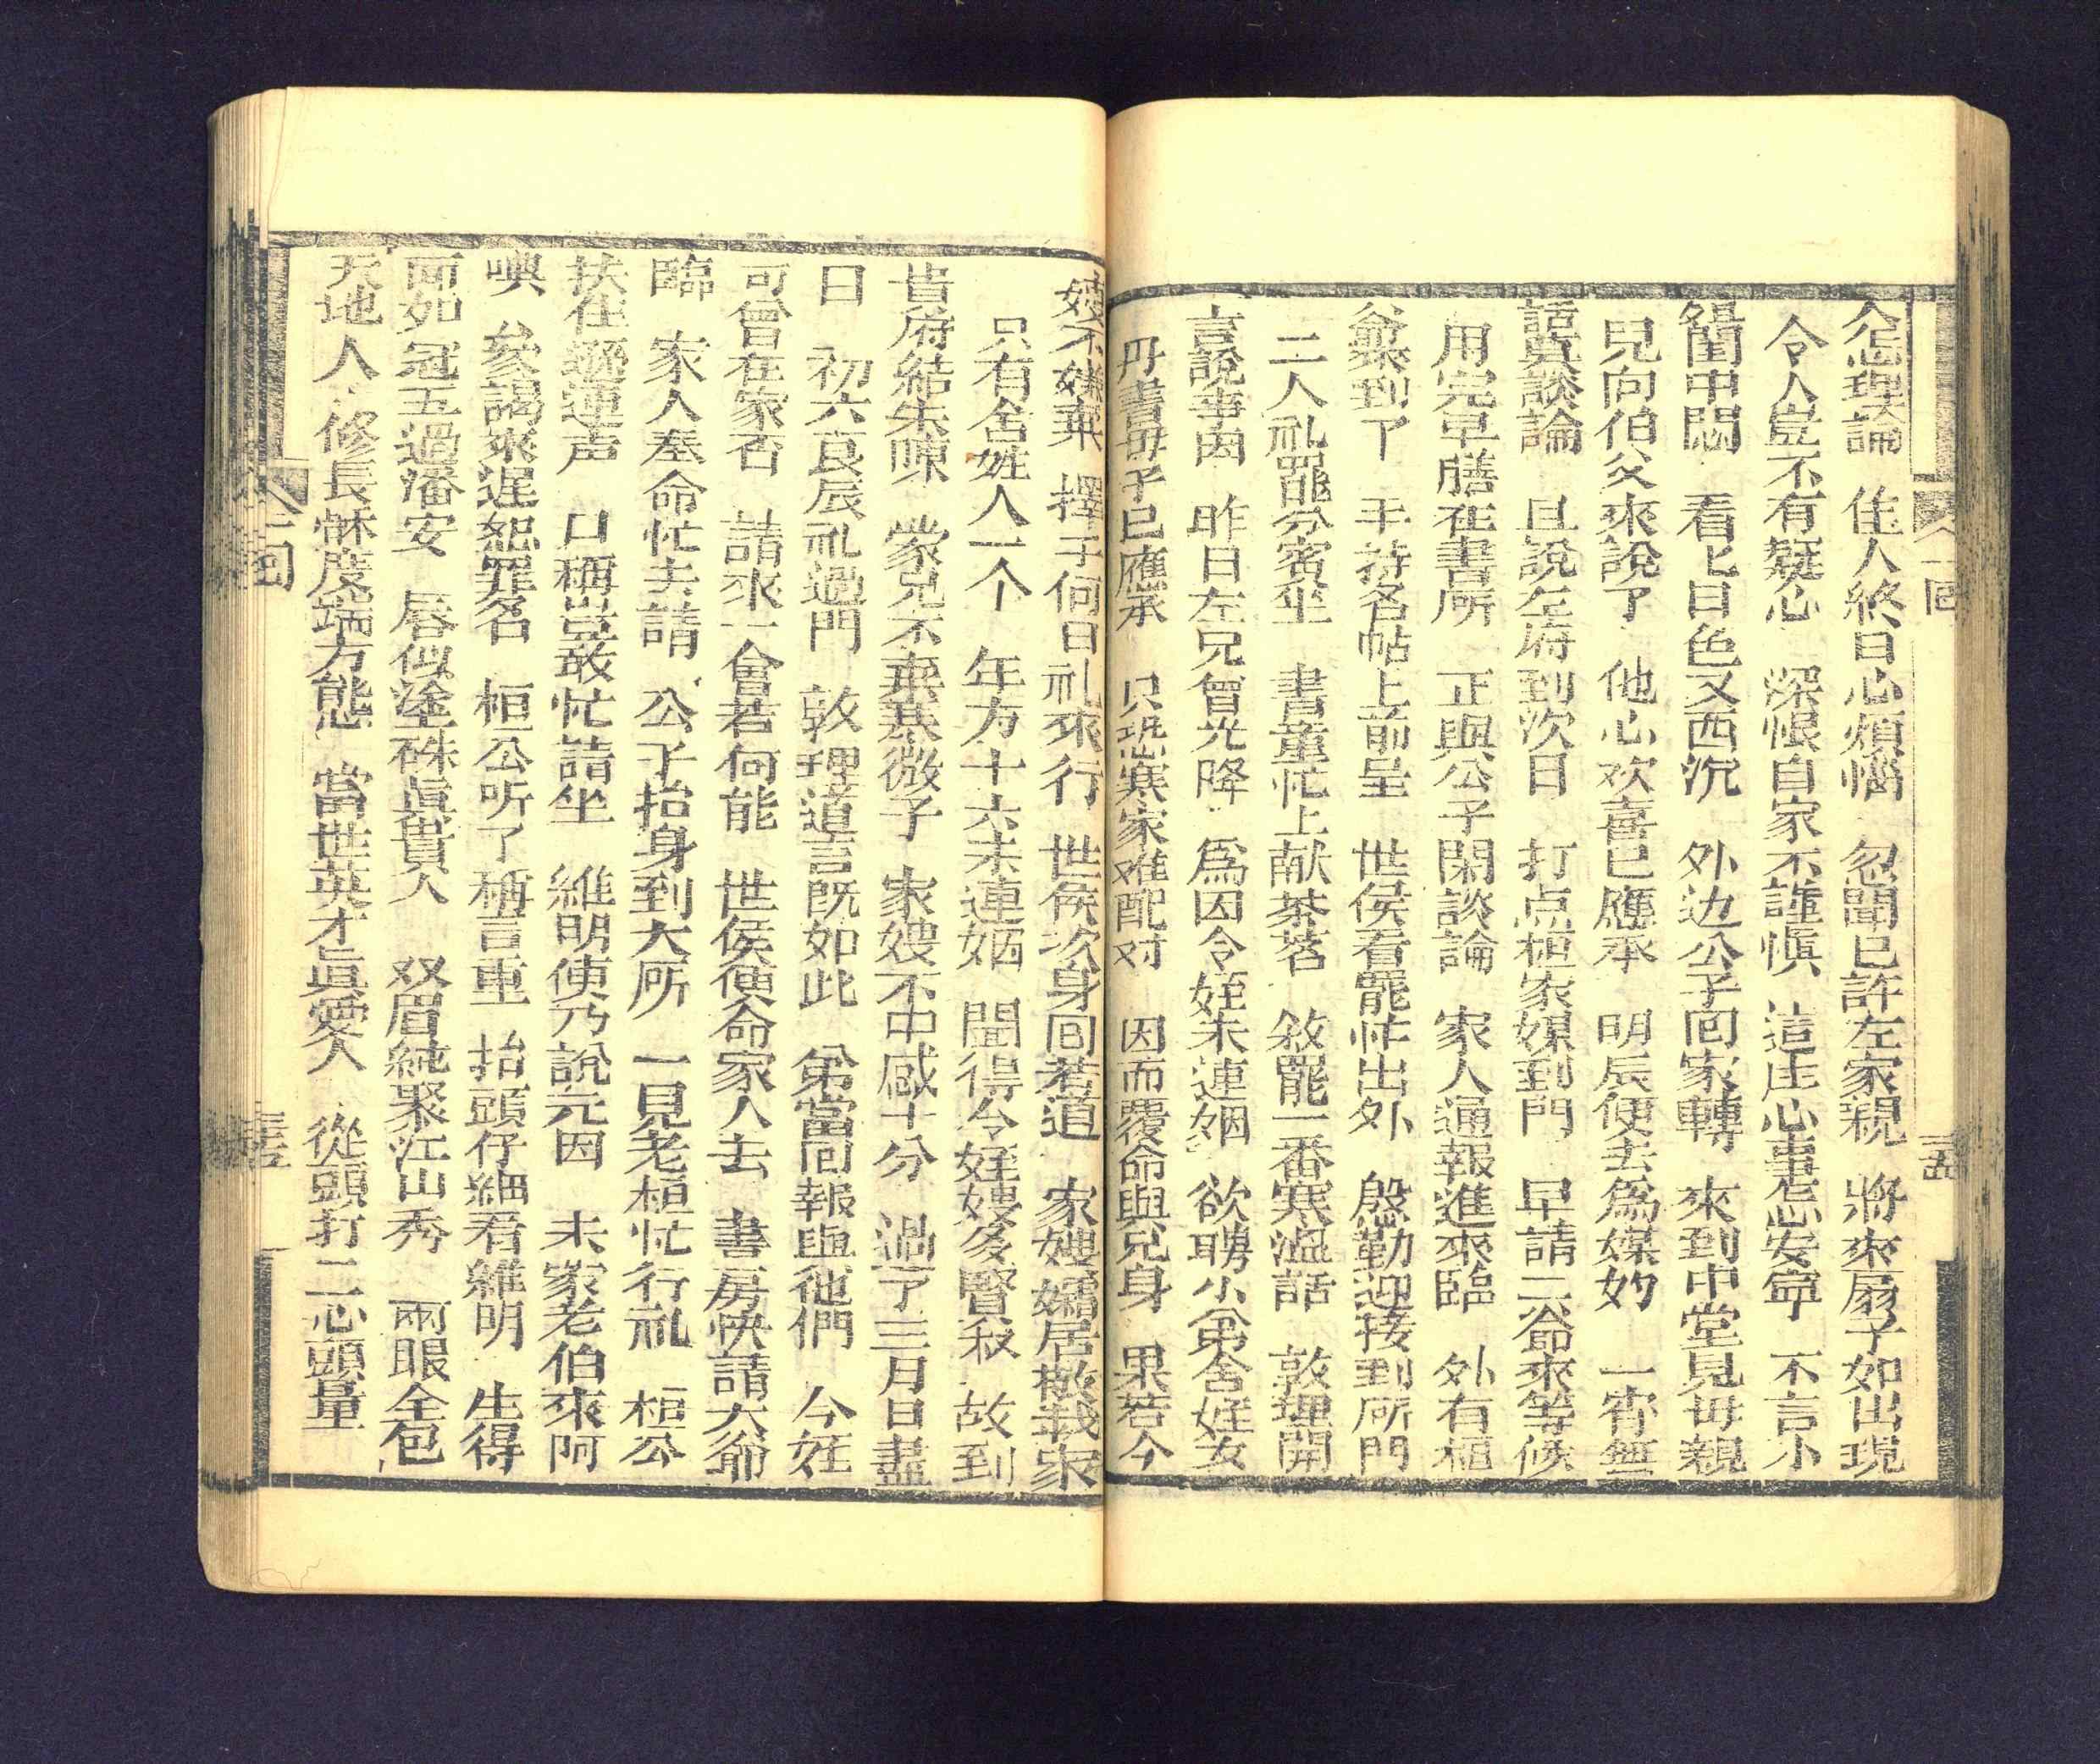 人怎理論　佳人終日心煩惱　忽聞已許左家親　將來扇子如出現
令人豈不有疑心　深恨自家不謹慎　這庄心事怎安寧　不言小
閨中悶　看匕日色又西沉　外边公子囘家轉　來到中堂見母親
兒向伯父來說了　他心欢喜已應承　明辰便去爲媒妁　一宵無
話莫談論　且說左府到次日　打点桓家媒到門　早請二爺來等候
用完早膳在書房　正與公子閑談論　家人通報進來臨　外有桓
爺來到了　手持名帖上前呈　世侯看罷忙出外　慇勤迎接到所門
二人礼罷分賓坐　書童忙上献茶茗　敘罷一番寒溫話　敦理開
言說事因　昨日左兄曾光降　爲因令姪未連姻　欲聘小弟舍姪女
丹書毋予已應承　只恐寒家难配对　因而覆命與兄身　果若今
嫂不嫌棄　擇于何日礼來行　世侯次身囘若道　家嫂孀居檄我家
只有舍姪人一个　年方十六未連姻　聞得令姪嫂多賢淑　故到
貴府結朱陳　蒙兄不棄寒微子　家嫂不中感十分　過了三月日盡
日　初六良辰礼過門　敦理道言既如此　弟當囘報與他們　今姪
可曾在家否　請來一會若何能　世侯便命家人去　書房快請大爺
臨　家人奉命忙去請　公子抬身到大所　一見老桓忙行礼　桓公
扶住遜連声　口稱豈敢忙請坐　維明便乃說元因　未家老伯來阿
嗔　叅謁來遲恕罪名　桓公听了稱言重　抬頭仔細看維明　生得
面如冠玉過潘安　唇似塗硃眞貴人　双眉純聚江山秀　兩眼全包
天地人　修長酥度端方態　當世英才眞愛人　從頭打二心頭量